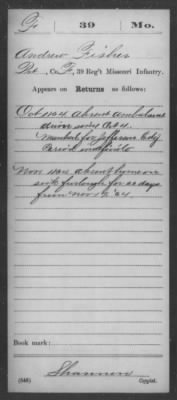 F 39 Mo.
Andrew Fisher
Pvt, Co. F, 39 Reg't Missouri Infantry.
Appears on Returns as follows:
Oct 1864 absent ambulance
driver since Oct 4.
for Jefferson City
Period indefinite
Nov 1864 absent by
sick furlough for 20 days
from Nov 12 64
Book mark:
Shannon
(546) Copyist.